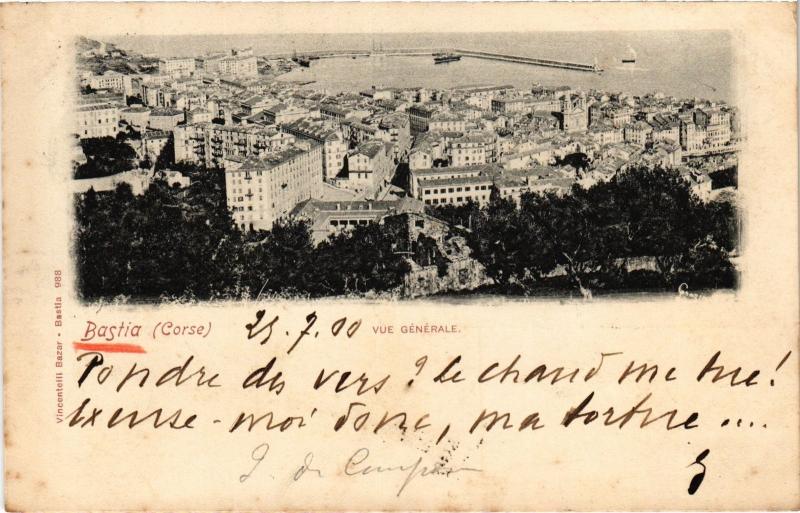 Bastia (Corse) 25.7.00 VUE GÉNÉRALE.
Pondre des vers? le chaud me tue!
Excuse-moi donc, ma tortue ....
J. de
Vincentelli Bazar - Bastia 988